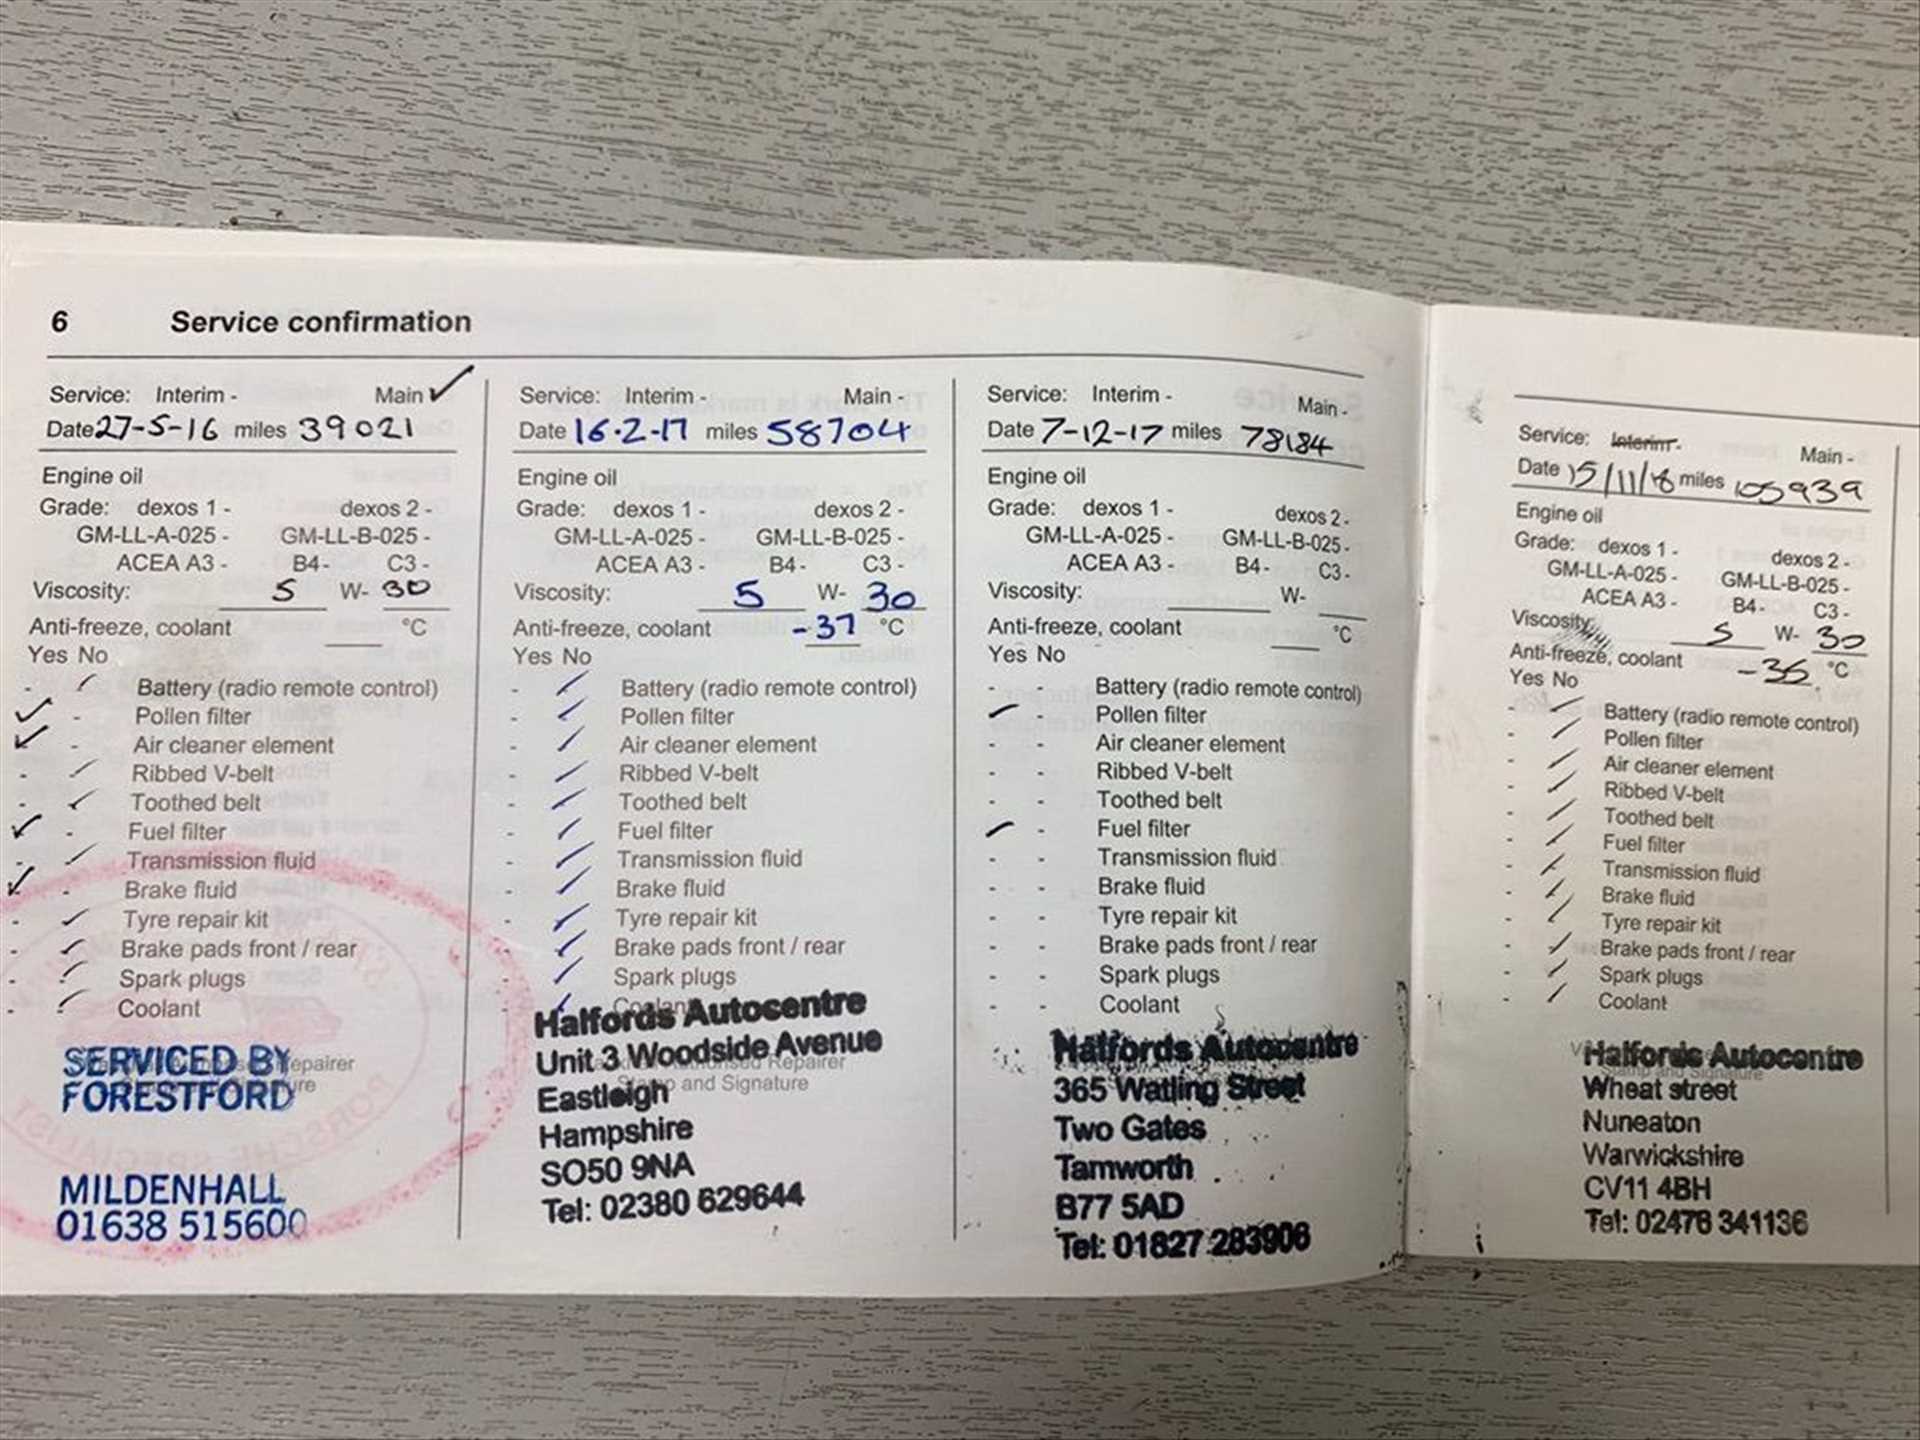 6 Service confirmation
Service: Interim - Main ✓
Date 27-5-16 miles 39021
Engine oil
Grade: dexos 1 - dexos 2 -
GM-LL-A-025 - GM-LL-B-025 -
ACEA A3 - B4 - C3 -
Viscosity: 5 W- 30
Anti-freeze, coolant °C
Yes No
- ✓ Battery (radio remote control)
✓ - Pollen filter
✓ - Air cleaner element
- ✓ Ribbed V-belt
- ✓ Toothed belt
✓ - Fuel filter
- ✓ Transmission fluid
✓ - Brake fluid
- ✓ Tyre repair kit
- ✓ Brake pads front / rear
- ✓ Spark plugs
- ✓ Coolant
SERVICED BY
FORESTFORD
Repairer
MILDENHALL
01638 515600
Service: Interim - Main -
Date 16.2-17 miles 58704
Engine oil
Grade: dexos 1 - dexos 2 -
GM-LL-A-025 - GM-LL-B-025 -
ACEA A3 - B4 - C3 -
Viscosity: 5 W- 30
Anti-freeze, coolant -37 °C
Yes No
- ✓ Battery (radio remote control)
- ✓ Pollen filter
- ✓ Air cleaner element
- ✓ Ribbed V-belt
- ✓ Toothed belt
- ✓ Fuel filter
- ✓ Transmission fluid
- ✓ Brake fluid
- ✓ Tyre repair kit
- ✓ Brake pads front / rear
- ✓ Spark plugs
- ✓ Coolant
Halfords Autocentre
Unit 3 Woodside Avenue
Authorised Repairer
Stamp and Signature
Eastleigh
Hampshire
SO50 9NA
Tel: 02380 629644
Service: Interim - Main -
Date 7-12-17 miles 78184
Engine oil
Grade: dexos 1 - dexos 2 -
GM-LL-A-025 - GM-LL-B-025 -
ACEA A3 - B4 - C3 -
Viscosity: W-
Anti-freeze, coolant °C
Yes No
- - Battery (radio remote control)
✓ - Pollen filter
- - Air cleaner element
- - Ribbed V-belt
- - Toothed belt
✓ - Fuel filter
- - Transmission fluid
- - Brake fluid
- - Tyre repair kit
- - Brake pads front / rear
- - Spark plugs
- - Coolant
Halfords Autocentre
365 Watling Street
Two Gates
Tamworth
B77 5AD
Tel: 01827 283906
Service: Interim - Main -
Date 15/11/18 miles 105939
Engine oil
Grade: dexos 1 - dexos 2 -
GM-LL-A-025 - GM-LL-B-025 -
ACEA A3 - B4 - C3 -
Viscosity: 5 W- 30
Anti-freeze, coolant -35 °C
Yes No
- ✓ Battery (radio remote control)
- ✓ Pollen filter
- ✓ Air cleaner element
- ✓ Ribbed V-belt
- ✓ Toothed belt
- ✓ Fuel filter
- ✓ Transmission fluid
- ✓ Brake fluid
- ✓ Tyre repair kit
- ✓ Brake pads front / rear
- ✓ Spark plugs
- ✓ Coolant
Halfords Autocentre
Stamp and Signature
Wheat street
Nuneaton
Warwickshire
CV11 4BH
Tel: 02476 341136